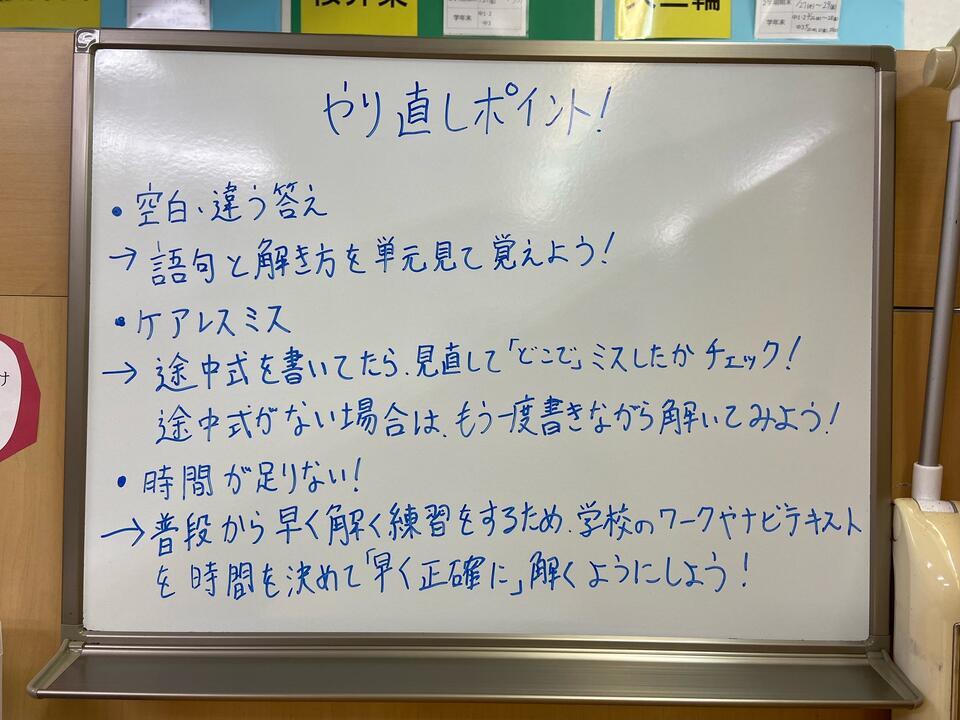 やり直しポイント!
• 空白、違う答え
→ 語句と解き方を単元見て覚えよう!
• ケアレスミス
→ 途中式を書いてたら、見直して「どこで」ミスしたかチェック!
途中式がない場合は、もう一度書きながら解いてみよう!
• 時間が足りない!
→ 普段から早く解く練習をするため、学校のワークやナビテキスト
を時間を決めて「早く正確に」解くようにしよう!
け
学年末